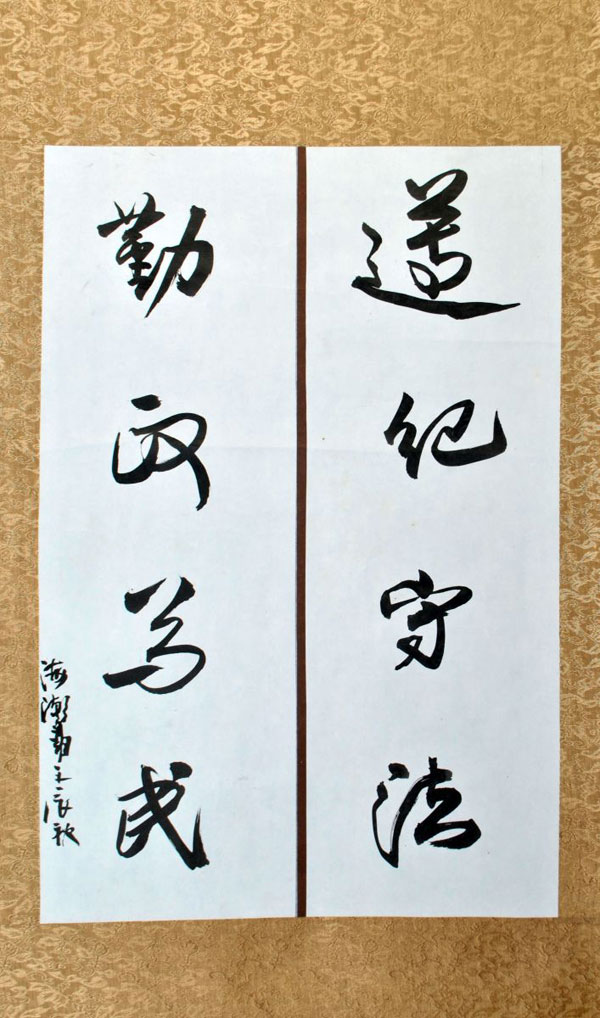 遵纪守法
勤政为民
海潮书壬辰秋